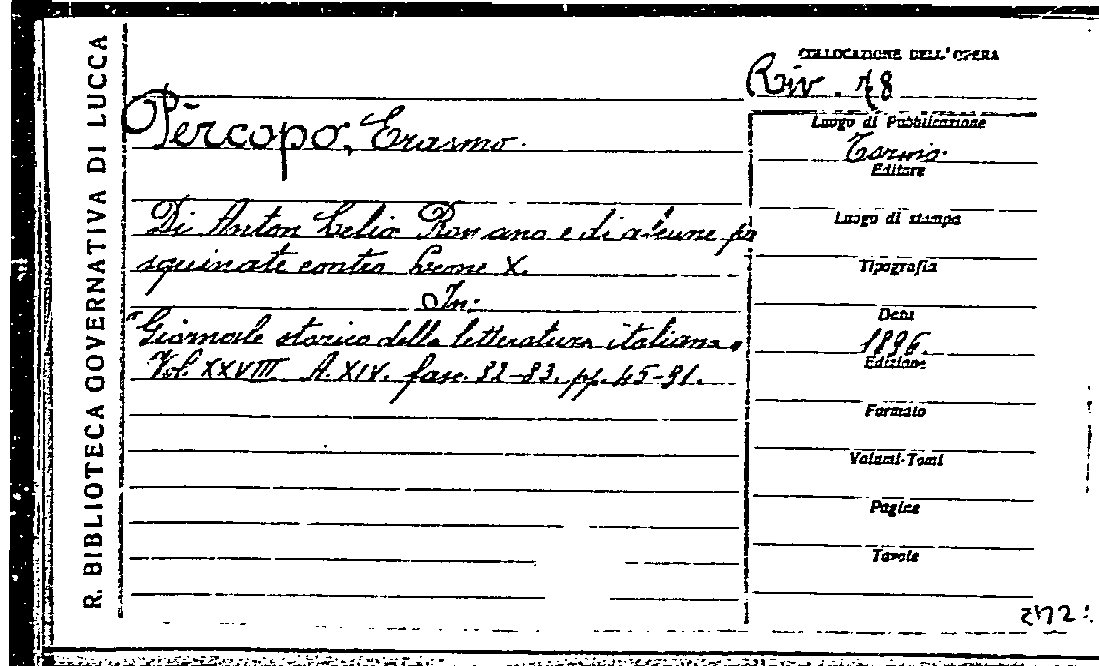 R. BIBLIOTECA GOVERNATIVA DI LUCCA
COLLOCAZIONE DELL'OPERA
Riv. 78
Pèrcopo, Erasmo.
Luogo di Pubblicazione
Torino.
Editore
Di Anton Lelio Romano e di alcune pa
squinate contro Leone X.
In:
"Giornale storico della letteratura italiana"
Vol. XXVIII A. XIV. fasc. 82-83. pp. 45-91.
Luogo di stampa
Tipografia
Data
1896.
Edizione
Formato
Volumi-Tomi
Pagine
Tavole